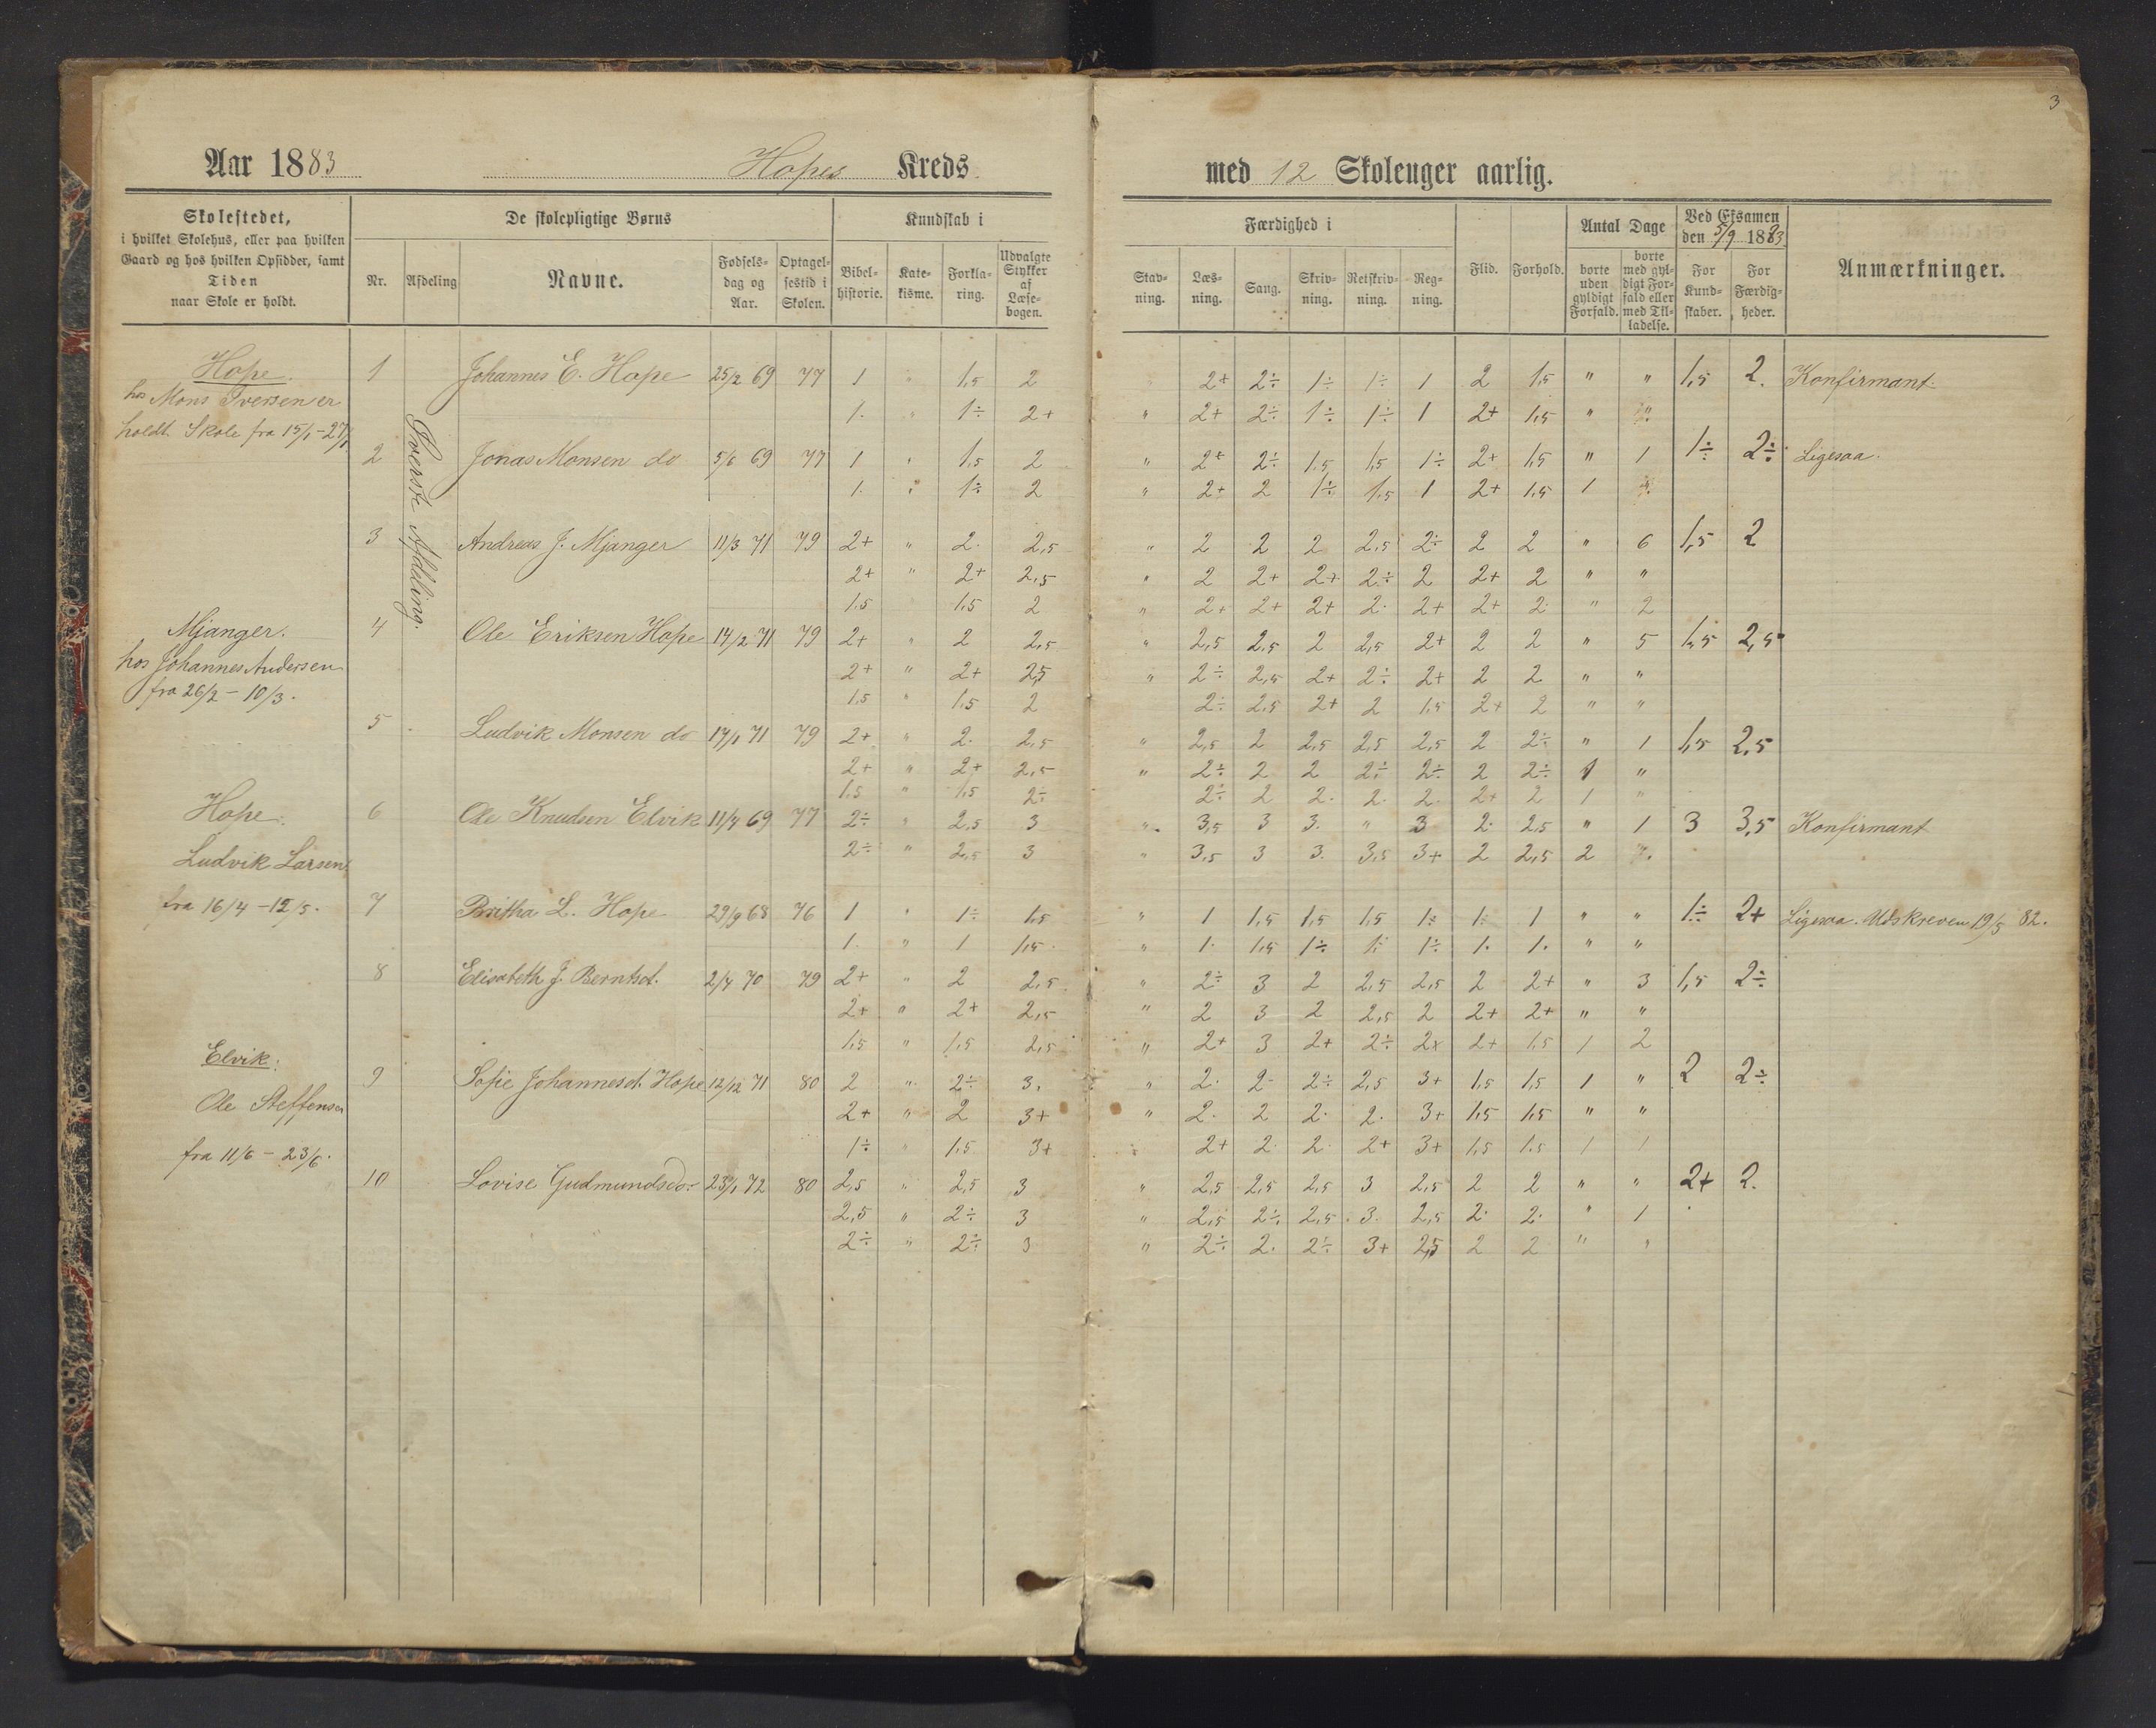 3
Aar 1883 Hopes Kreds
med 12 Skoleuger aarlig.
Skolestedet,
i hvilket Skolehus, eller paa hvilken
Gaard og hos hvilken Opsidder, samt
Tiden
naar Skole er holdt.
De skolepligtige Børns
Nr.
Afdeling
Navne.
Fødsels-
dag og
Aar.
Optagel-
sestid i
Skolen.
Kundskab i
Bibel-
historie.
Kate-
kisme.
Forkla-
ring.
Udvalgte
Stykker
af
Læse-
bogen.
Færdighed i
Stav-
ning.
Læs-
ning.
Sang.
Skriv-
ning.
Retskriv-
ning.
Reg-
ning.
Flid.
Forhold.
Antal Dage
borte
uden
gyldigt
Forfald.
borte
med gyl-
digt For-
fald eller
med Til-
ladelse.
Ved Eksamen
den 5/9 1883
For
Kund-
skaber.
For
Færdig-
heder.
Anmærkninger.
Hope.
hos Mons Iversen er
holdt Skole fra 15/1-27/1
Mjanger.
hos Johannes Andersen
fra 26/2 - 10/3.
Hope.
Ludvik Larsen
fra 16/4 - 12/5.
Elvik.
Ole Steffensen
fra 11/6 - 23/6.
Øverste Afdeling.
1 Johannes E. Hope 25/2 69 77 1 " 1,5 2 2+ 2÷ 1÷ 1÷ 1 2 1,5 " " 1,5 2. Konfirmant.
1. " 1÷ 2+ " 2+ 2÷ 1÷ 1÷ 1 2+ 1,5 " "
2 Jonas Monsen do 5/6 69 77 1 " 1,5 2 " 2+ 2÷ 1,5 1,5 1÷ 2+ 1,5 " 1 1÷ 2÷ Ligesaa.
1. " 1÷ 2 " 2+ 2 1÷ 1,5 1 2+ 1,5 1
3 Andreas J. Mjanger 11/3 71 79 2+ " 2. 2,5 " 2 2 2 2,5 2÷ 2 2 " 6 1,5 2
2+ " 2+ 2,5 " 2 2+ 2+ 2÷ 2 2+ 2 " "
1,5 1,5 2 " 2+ 2+ 2+ 2. 2+ 2+ 2. " 2
4 Ole Eriksen Hope 14/2 71 79 2+ " 2 2,5 " 2,5 2,5 2 2,5 2+ 2 2 " 5 1,5 2,5
2+ " 2+ 2,5 " 2÷ 2,5 2+ 2÷ 2+ 2 2 " "
1,5 " 1,5 2 2÷ 2,5 2+ 2 1,5 2+ 2 " "
5 Ludvik Monsen do 17/1 71 79 2+ " 2. 2,5 " 2,5 2 2,5 2,5 2,5 2 2÷ " 1 1,5 2,5
2+ " 2+ 2,5 " 2÷ 2 2 2÷ 2÷ 2 2÷ 1 "
1,5 " 1,5 2÷ 2÷ 2 2. 2. 2. 2+ 2 1 "
6 Ole Knudsen Elvik 11/4 69 77 2÷ " 2,5 3 " 3,5 3 3. " 3 2. 2,5 " 1 3 3,5 Konfirmant
2÷ " 2,5 3 " 3,5 3 3. 3,5 3+ 2 2,5 2
7 Britha L. Hope 29/9 68 76 1 " 1÷ 1,5 " 1 1,5 1,5 1,5 1÷ 1. 1 " " 1÷ 2+ Ligesaa. Udskreven 19/5 82.
1. " 1 1,5. " 1. 1,5 1÷ 1÷ 1÷ 1. 1. " "
8 Elisabeth J. Berntsd. 2/4 70 79 2+ " 2 2,5 " 2÷ 3 2 2,5 2,5 2 2+ " 3 1,5 2÷
2+ " 2+ 2,5 " 2 3 2 2,5 2 2+ 2+ " "
1,5 " 1,5 2,5 " 2+ 3 2+ 2÷ 2+ 2+ 1,5 1 2
9 Sofie Johannesd. Hope 12/12 71 80 2 " 2÷ 3. " 2. 2- 2÷ 2,5 3+ 1,5 1,5 1 " 2 2÷
2+ " 2 3+ " 2. 2 2. 2. 3+ 1,5 1,5 " "
1÷ " 1,5 3+ 2+ 2. 2. 2+ 3+ 1,5 1.5 1 1
10 Lovise Gudmundsdr. 23/1 72 80 2,5 " 2,5 3 " 2,5 2,5 2,5 3 2,5 2 2 " " 2+ 2.
2,5 " 2÷ 3 " 2,5 2÷ 2,5 3. 2,5 2. 2. " 1
2÷ " 2÷ 3 " 2÷ 2. 2÷ 3+ 2,5 2 2 " "